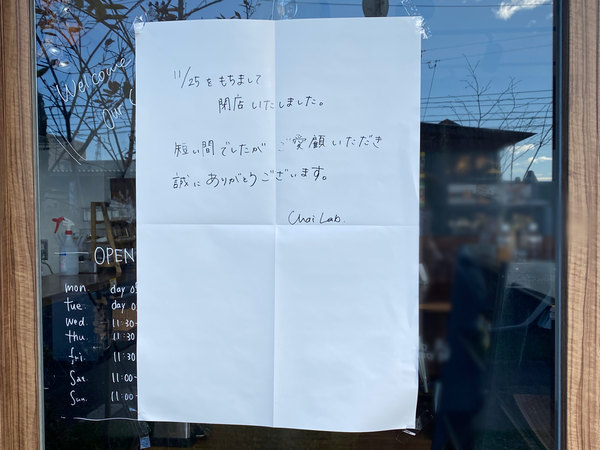 11/25をもちまして
閉店いたしました。
短い間でしたが ご愛顧いただき
誠にありがとうございます。
Chai Lab.
Welcome
our
OPEN
mon. day
tue. day
Wed. 11:30-
thu. 11:30
fri. 11:30
Sat. 11:00-
Sun. 11:00-